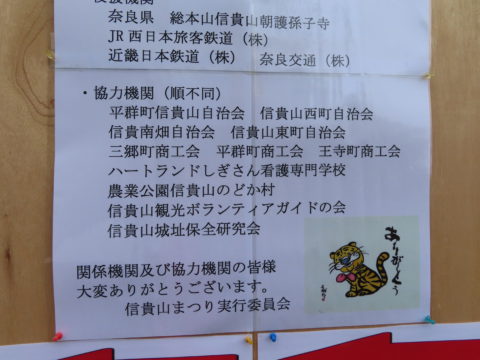 奈良県　総本山信貴山朝護孫子寺
JR 西日本旅客鉄道（株）
近畿日本鉄道（株）　奈良交通（株）
・協力機関（順不同）
平群町信貴山自治会　信貴山西町自治会
信貴南畑自治会　信貴山東町自治会
三郷町商工会　平群町商工会　王寺町商工会
ハートランドしぎさん看護専門学校
農業公園信貴山のどか村
信貴山観光ボランティアガイドの会
信貴山城址保全研究会
関係機関及び協力機関の皆様
大変ありがとうございます。
信貴山まつり実行委員会